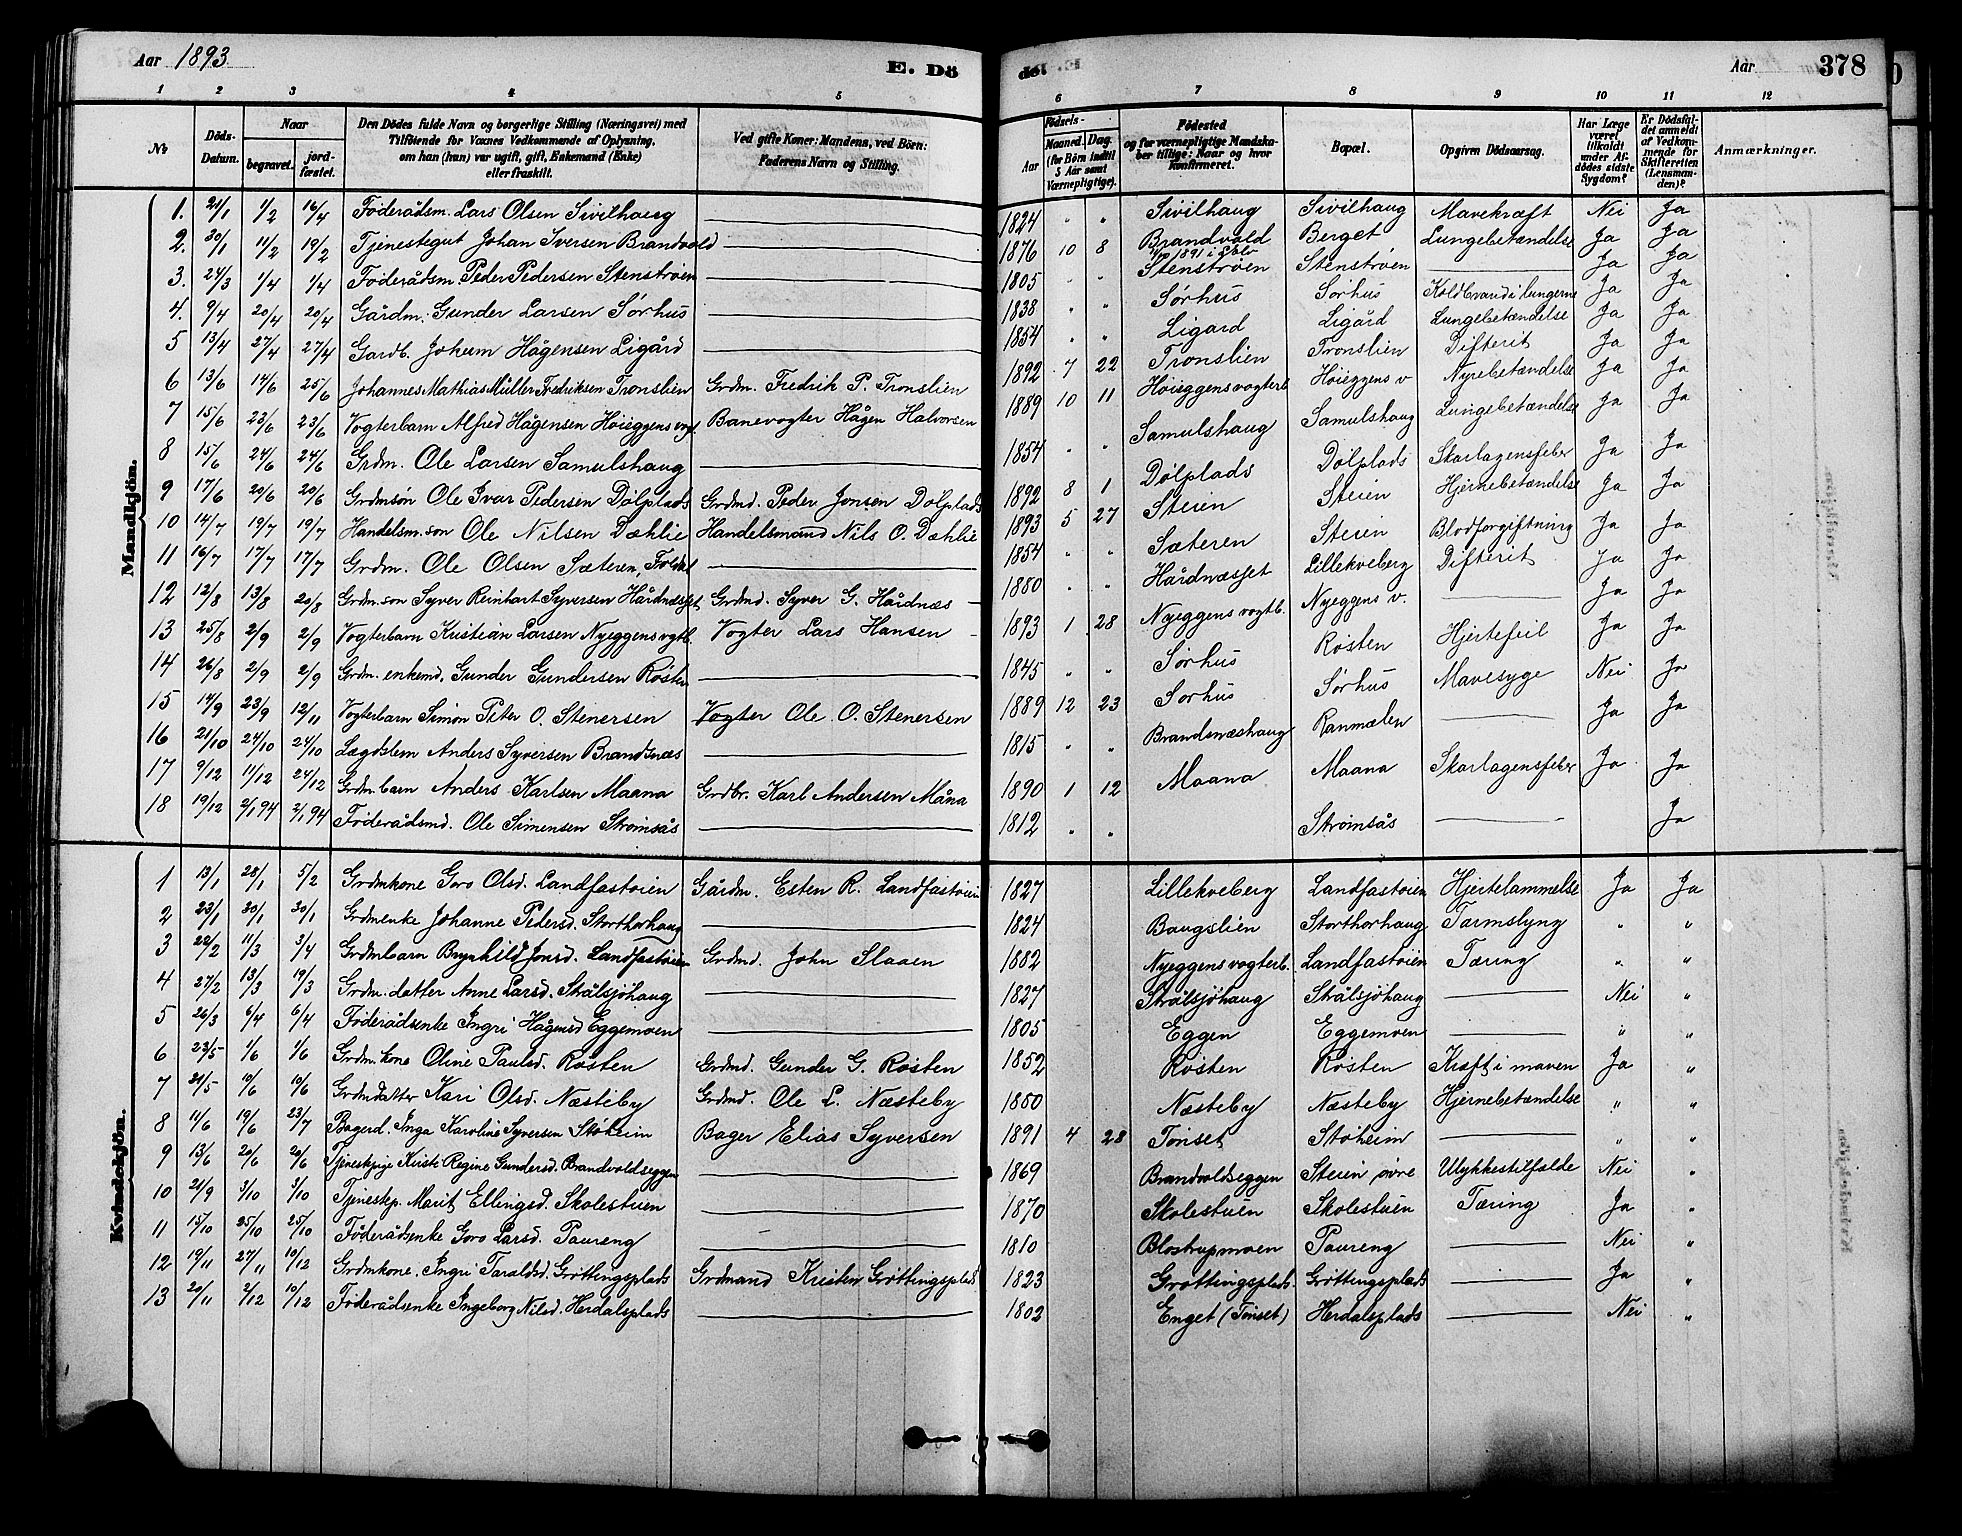 Aar 1893. E. Dö
döt Aar 378
1 2 3 4 5 6 7 8 9 10 11 12
No Döds-Datum. Naar begravet. jordfæstet. Den Dödes fulde Navn og borgerlige Stilling (Næringsvei) med Tilföiende for Voxnes Vedkommende af Oplysning, om han (hun) var ugift, gift, Enkemand (Enke) eller fraskilt. Ved gifte Koner: Mandens, ved Börn: Faderens Navn og Stilling. Födsels- Aar Maaned. Dag. (for Börn indtil 5 Aar samt Værnepligtige). Födested og for værnepligtige Mandskaber tillige: Naar og hvor konfirmeret. Bopæl. Opgiven Dödsaarsag. Har Læge været tilkaldt under Afdödes sidste Sygdom? Er Dödsfaldet anmeldt af Vedkommende for Skifteretten (Lensmanden)? Anmærkninger.
Mandkjön.
1. 21/1 1/2 16/4 Föderådsm. Lars Olsen Sivilhaug 1824 " " Sivilhaug Sivilhaug Mavekræft Nei Ja
2. 30/1 11/2 19/2 Tjenestegut Johan Iversen Brandvold 1876 10 8 Brandvold 1891 i Berget Lungebetændelse Ja Ja
3. 24/3 1/4 1/4 Föderådsm. Peder Pedersen Stenstrøen 1805 " " Stenstrøen Stenstrøen Ja Ja
4. 9/4 20/4 20/4 Gårdm. Gunder Larsen Sørhus 1838 " " Sørhus Sørhus Koldbrand i lungerne Ja Ja
5 13/4 27/4 27/4 Gardb. Johum Hågensen Ligård 1854 " " Ligard Ligård Lungebetændelse Ja Ja
6 13/6 14/6 25/6 Johannes Mathias Müller Fredriksen Tronslien Grdm. Fredrik P. Tronslien 1892 7 22 Tronslien Tronslien Difterit Ja Ja
7 15/6 23/6 23/6 Vogterbarn Alfred Hågensen Høieggens vogt. Banevogter Hågen Halvorsen 1889 10 11 Høieggens vogterb. Høieggens v Nyrebetændelse Ja Ja
8 15/6 24/6 24/6 Grdm. Ole Larsen Samulshaug 1854 " " Samulshaug Samulshaug Lungebetændelse Ja Ja
9 17/6 20/6 20/6 Grdmsøn Ole Ivar Pedersen Dølplads Grdmd. Peder Jonsen Dølplads 1892 8 1 Dølplads Dølplads Skarlagensfeber Ja Ja
10 14/7 19/7 19/7 Handelsm. son Ole Nilsen Dæhlie Handelsmand Nils O. Dæhlie 1893 5 27 Steien Steien Hjernebetændelse Ja Ja
11 16/7 17/7 17/7 Grdm. Ole Olsen Sæteren, Foldal 1854 " " Sæteren Steien Blodforgiftning Ja Ja
12 12/8 13/8 20/8 Grdm. son Syver Reinhart Syversen Hårdnæsset Grdmd. Syver G. Hårdnæs 1880 " " Hårdnæsset Lillekveberg Difterit Ja Ja
13 25/8 2/9 2/9 Vogterbarn Kristian Larsen Nyeggens vogtb. Vogter Lars Hansen 1893 1 28 Nyeggens vogtb. Nyeggens v. Ja Ja
14 26/8 2/9 2/9 Grdm. enkemd. Gunder Gundersen Røsten 1845 " " Sørhus Røsten Hjertefeil Ja Ja
15 14/9 23/9 12/11 Vogterbarn Simon Peter O. Stenersen Vogter Ole O. Stenersen 1889 12 23 Sørhus Sørhus Mavesyge Nei Ja
16 21/10 24/10 24/10 Lægdslem Anders Syversen Brandsnæs 1815 " " Brandsnæshaug Ranmælen Ja Ja
17 9/12 11/12 24/12 Grdm. barn Anders Karlsen Maana Grdbr. Karl Andersen Måna 1890 1 12 Maana Maana Skarlagensfeber Ja Ja
18 19/12 2/1 94 2/1 94 Föderådsmd. Ole Simensen Strømsås 1812 " " Strømsås Ja
Kvindekjön.
1 13/1 28/1 5/2 Grdmkone Goro Olsd. Landfastøien Gårdm. Esten R. Landfastøien 1827 Lillekveberg Landfastøien Hjertelammelse Ja Ja
2 23/1 30/1 30/1 Grdmenke Johanne Pedersd. Storthorhaug 1824 Baugslien Storthorhaug Tarmslyng " "
3 22/2 11/3 3/4 Grdmbarn Brynhild Jonsd. Landfastøien Grdmd. John Slaaen 1882 Nyeggens vogterb. Landfastøien Tæring " "
4 27/2 13/3 19/3 Grdm. datter Anne Larsd. Strålsjöhaug 1827 Strålsjöhaug Strålsjöhaug Nei "
5 26/3 6/4 6/4 Föderådsenke Ingri Hågensd Eggemoen 1805 Eggen Eggemoen " "
6 23/5 1/6 1/6 Grdm. kone Oline Paulsd. Røsten Grdmd. Gunder G. Røsten 1852 Røsten Røsten Kræft i maven Ja "
7 21/5 10/6 10/6 Grdmdatter Kari Olsd. Næsteby Grdmd. Ole L. Næsteby 1850 Næsteby Næsteby Hjernebetændelse " "
8 11/6 19/6 23/7 Bagerd. Inga Karoline Syversen Støheim Bager Elias Syversen 1891 4 28 Tønset Støheim " "
9 13/6 20/6 20/6 Tjenestpige Kirsti Regine Gundersd. Brandvoldseggen 1869 Brandvoldseggen Steien øvre Ulykkestilfælde Nei "
10 21/9 3/10 3/10 Tjenestep. Marit Ellingsd. Skolestuen 1870 Skolestuen Skolestuen Tæring Ja "
11 15/10 25/10 25/10 Föderådsenke Goro Larsd. Paureng 1810 Blostrupmoen Paureng Nei "
12 19/11 27/11 10/12 Grdmkone. Ingri Taraldsd. Grøttingsplads Grdmand Kristen Grøttingsplads 1823 Grøttingsplads. Grøttingsplads Ja "
13 20/11 2/12 10/12 Föderådsenke Ingeborg Nilsd. Herdalsplads 1802 Enget (Tønset) Herdalsplads Nei "